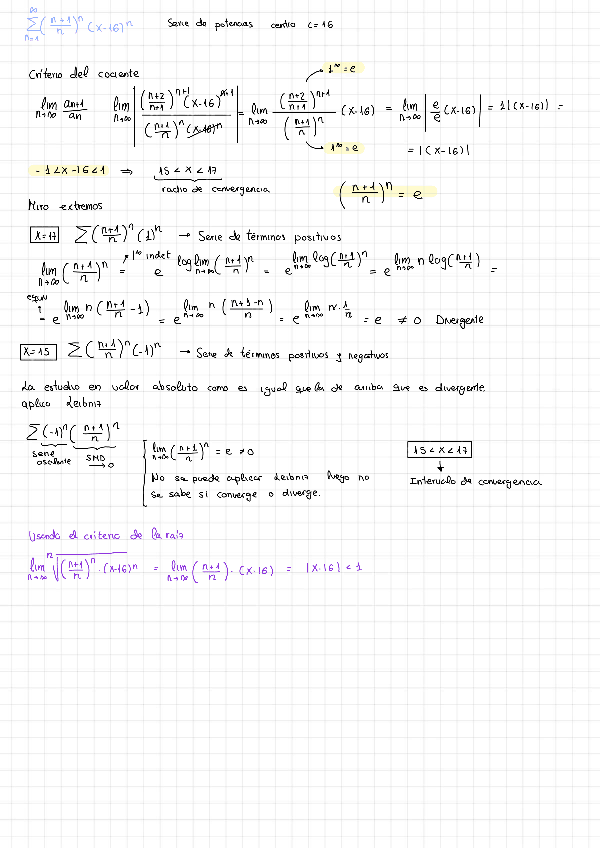 ∞∑n=1 ((n+1)/n)^n (x-16)^n   Serie de potencias centro c=16
Criterio del cociente
1^∞ = e
lim n→∞ an+1/an   lim n→∞ |((n+2)/(n+1))^(n+1) (x-16)^(n+1) / ((n+1)/n)^n (x-16)^n| = lim n→∞ ((n+2)/(n+1))^(n+1) / ((n+1)/n)^n (x-16) = lim n→∞ |e/e (x-16)| = 1|(x-16)| =
1^∞ = e
= |(x-16)|
-1<x-16<1 ⇒ 15 < x < 17
radio de convergencia
((n+1)/n)^n = e
Miro extremos
x=17   ∑((n+1)/n)^n (1)^n → Serie de términos positivos
1^∞ indet
lim n→∞ ((n+1)/n)^n = e^(log lim n→∞ ((n+1)/n)^n) = e^(lim n→∞ log((n+1)/n)^n) = e^(lim n→∞ n log((n+1)/n)) =
equiv
= e^(lim n→∞ n((n+1)/n - 1)) = e^(lim n→∞ n((n+1-n)/n)) = e^(lim n→∞ n·1/n) = e ≠ 0 Divergente
x=15   ∑((n+1)/n)^n (-1)^n → Serie de términos positivos y negativos
La estudio en valor absoluto como es igual que la de arriba que es divergente
aplico Leibniz
∑(-1)^n ((n+1)/n)^n
serie oscilante   SMD → 0
lim n→∞ ((n+1)/n)^n = e ≠ 0
No se puede aplicar Leibniz luego no
se sabe si converge o diverge.
15 < x < 17
Intervalo de convergencia
Usando el criterio de la raíz
lim n→∞ ⁿ√(((n+1)/n)^n · (x-16)^n) = lim n→∞ ((n+1)/n) · (x-16) = |x-16| < 1